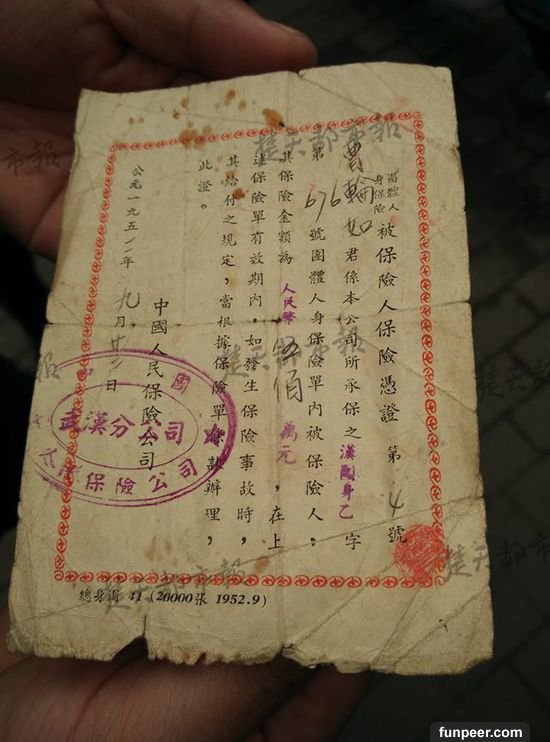 團體人身保險 被保險人保險憑證 第 4 號
曹輪如 君係本公司所承保之漢團身乙字
第 676 號團體人身保險單內被保險人,
其保險金額為人民幣伍佰萬元,在上
述保險單有效期內,如發生保險事故時,
其給付之規定,當根據保險單條款辦理,
此證。
中國人民保險公司
公元一九五二年 九月 日
武漢分公司
保險公司
總身團 41 (20000張 1952.9)
楚天都市報
楚天都市報
楚天都市報
楚天都市報
市報
報
funpeer.com